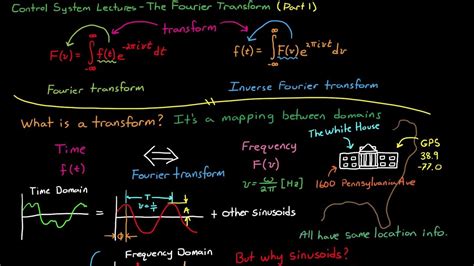 Control System Lectures - The Fourier Transform (Part 1)
transform
F(v) = ∫_{-∞}^{∞} f(t) e^{-2πivt} dt
f(t) = ∫_{-∞}^{∞} F(v) e^{2πivt} dv
Fourier transform
Inverse Fourier transform
What is a transform? It's a mapping between domains
The White House
Time
f(t)
⇔
Fourier transform
Frequency
F(v)
v = ω/2π [Hz]
GPS
38.9
-77.0
1600 Pennsylvania Ave
Time Domain
=
T
v = 1/T
A
+ other sinusoids
All have same location info.
Frequency Domain
But why sinusoids?